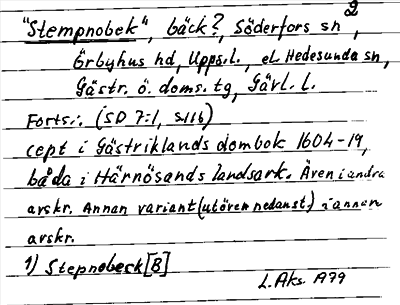 2
"Stempnobek", bäck?, Söderfors sn,
Örbyhus hd, Upps.l., el. Hedesunda sn,
Gästr. ö. doms. tg, Gävl. l.
Forts.: (SD 7:1, s.116)
cept i Gästriklands dombok 1604-19,
båda i Härnösands landsark. Även i andra
avskr. Annan variant (utöver nedanst.) i annan
avskr.
1) Stepnobeck [B]
L. Aks. A79